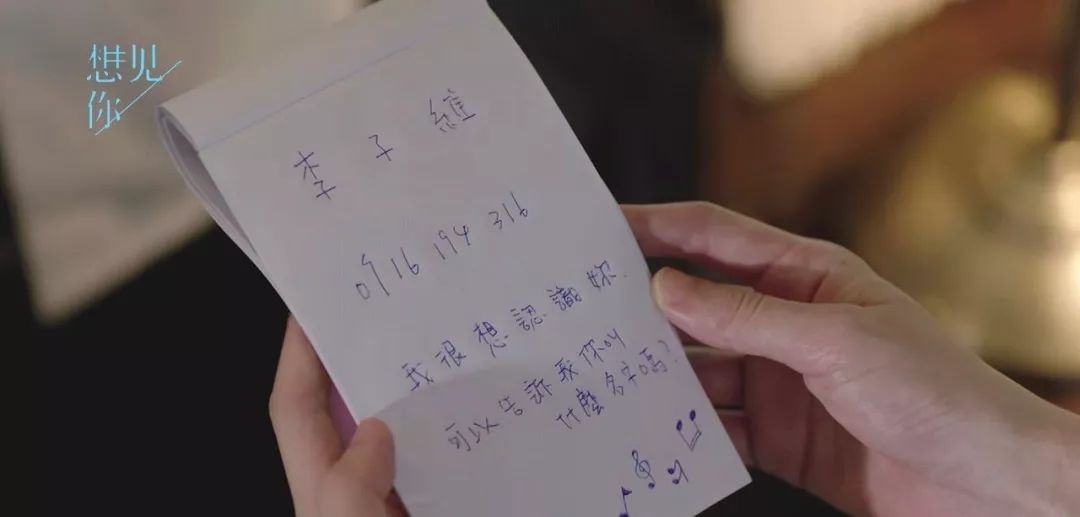 想见
你
李子維
0916 194 316
我很想認識妳.
可以告訴我你叫
什麼名字嗎?